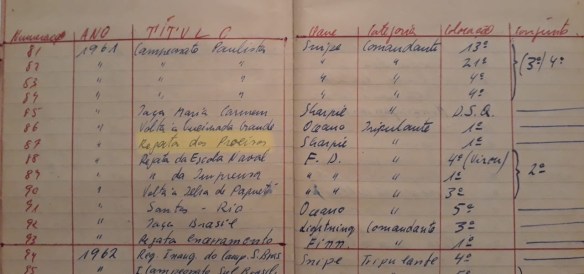 Numeração ANO TÍTULO Classe Categoria Colocação Conjunto
81 1961 Campeonato Paulista Snipe Comandante 13º
82 " " " " " 21º (3º) 4º
83 " " " " " 4º
84 " " " " " 4º
85 " Taça Maria Carmem Sharpie " D.S.Q.
86 " Volta à Queimada Grande Oceano Tripulante 1º
87 " Regata dos Proeiros Sharpie " 1º
88 " Regata da Escola Naval F. D. " 4º (Virou)
89 " " da Imprensa " " 1º 2º
90 " Volta à Ilha de Paquetá " " 3º
91 " Santos - Rio Oceano " 5º
92 " Taça Brasil Lightning Comandante 3º
93 " Regata Encerramento Finn " 1º
94 1962 Reg. Inaug. do Camp. S. Bras Snipe Tripulante 4º
95 " Campeonato Sul Brasil.